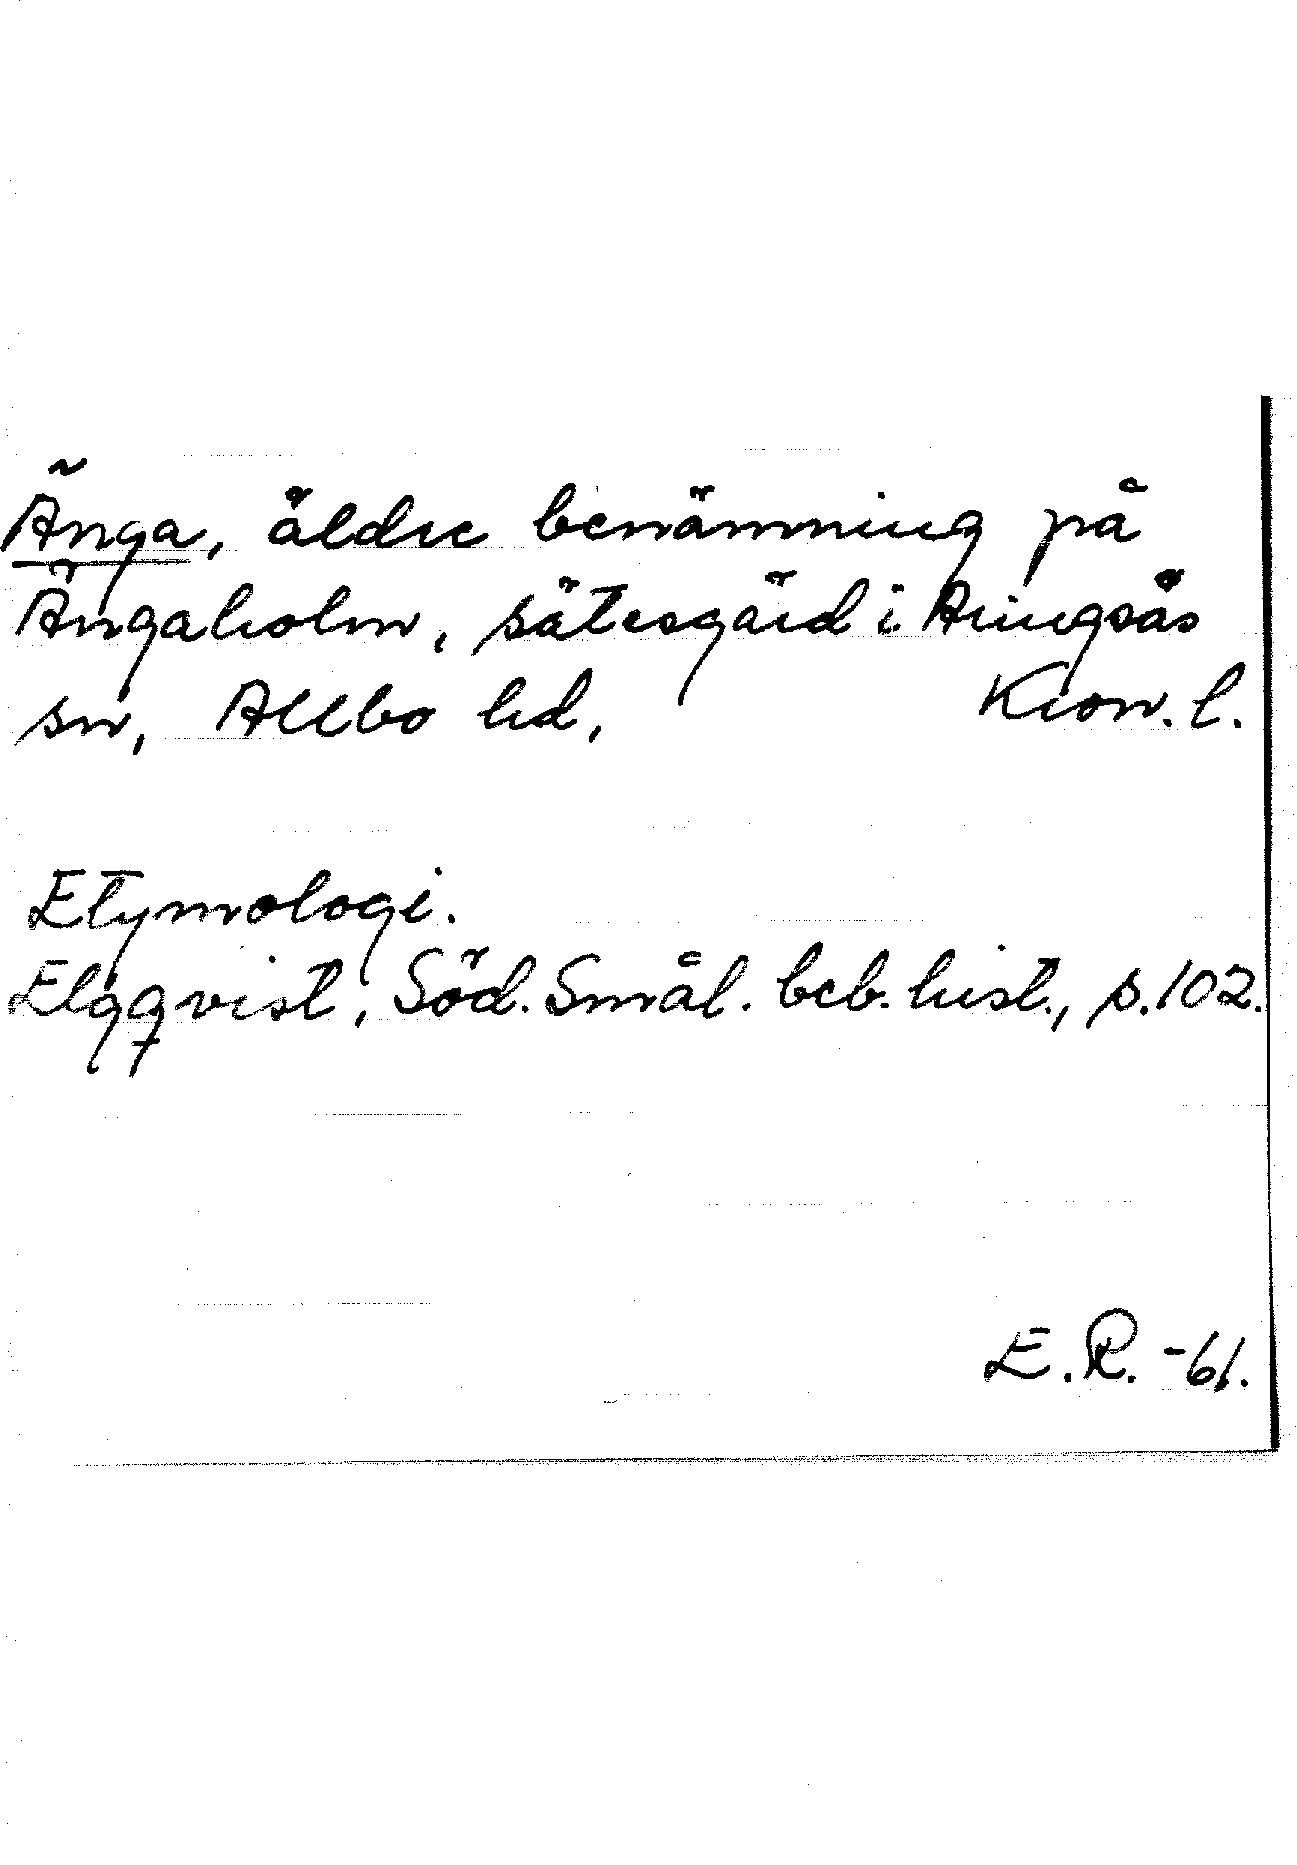 Änga, äldre benämning på
Ängaholm, sätesgård i Aringsås
sn, Allbo hd, Kron. l.
Etymologi.
Elgqvist, Söd. Smål. beb. hist., s. 102.
E. R. -61.